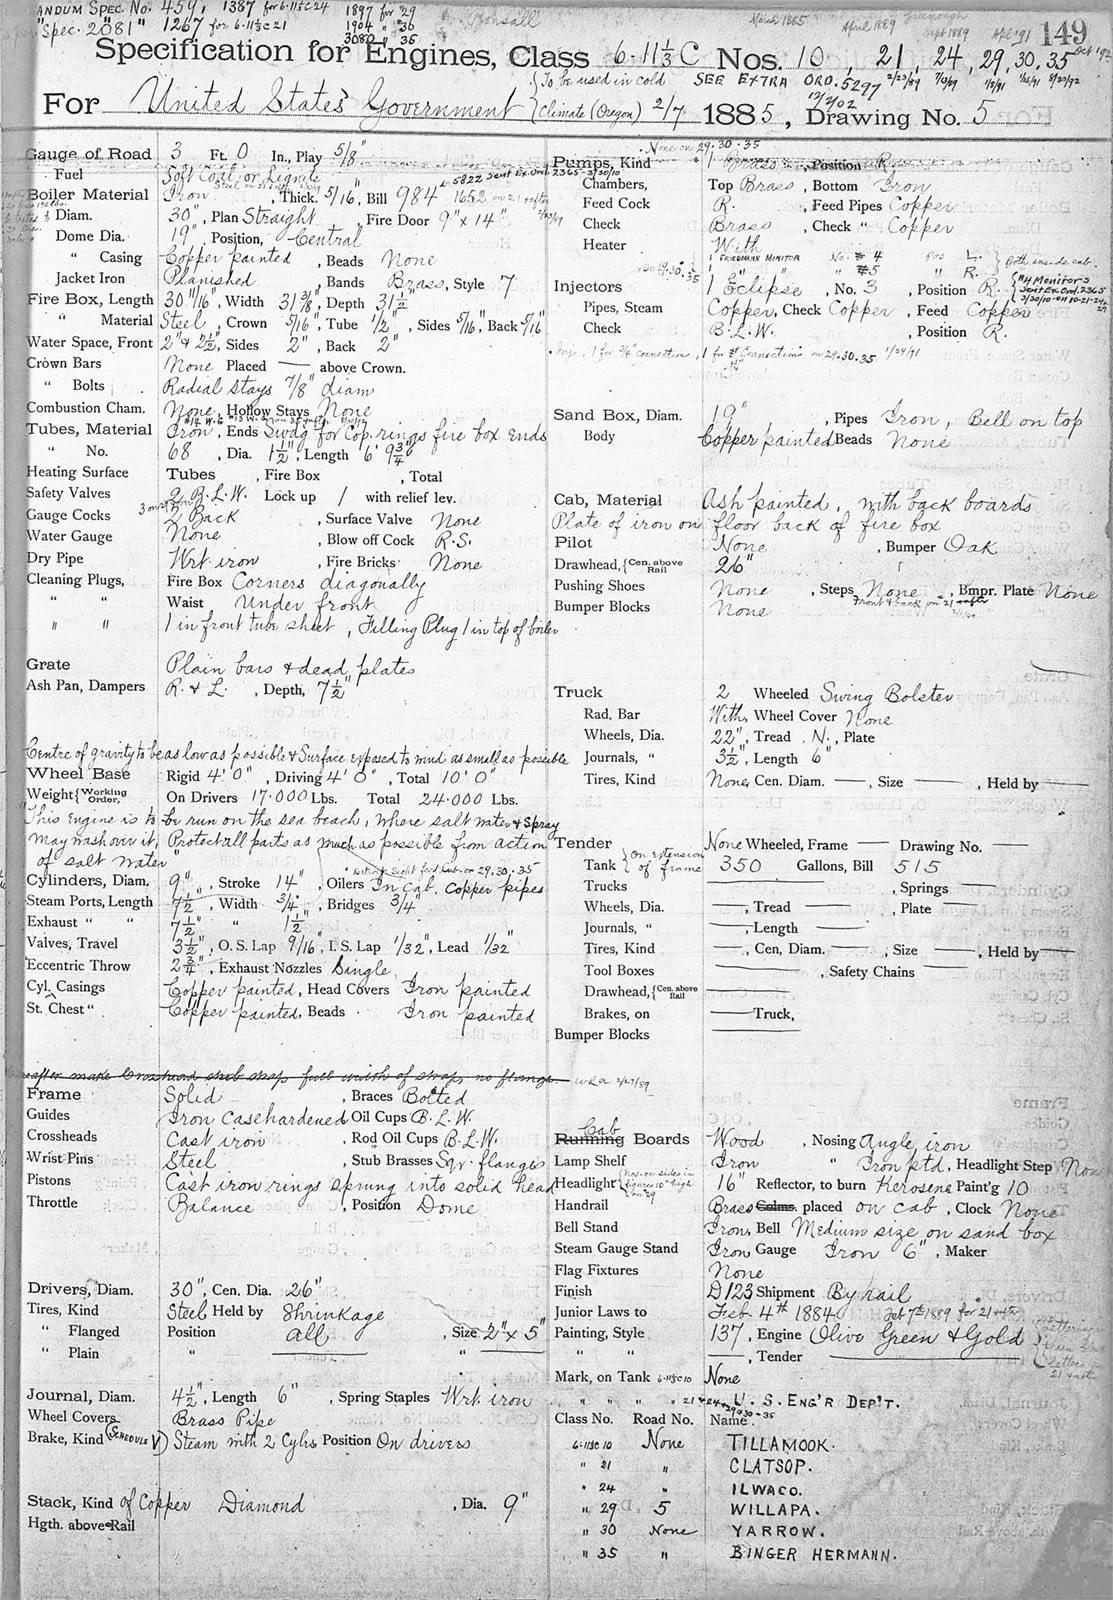 ANDUM SPEC. NO. 459, 1387 for 6-11⅓C24 1897 for 29
"Spec. 2081" 1267 for 6-11⅓C21 1904 " 30
3080 " 35
March 1885 April 1889 Sept 1889 Apl '91 Oct '92
149
Specification for Engines, Class 6-11⅓ C Nos. 10, 21, 24, 29, 30. 35
For United States Government {To be used in cold Climate (Oregon) 2/7 1885, Drawing No. 5
SEE EXTRA ORD. 5297 12/2/02
Gauge of Road 3 Ft. 0 In., Play 5/8"
Fuel Soft Coal or Lignite
Boiler Material Iron, Thick. 5/16", Bill 984 1652 on 21 + after
5822 Sent Ex. Ord. 2365-3/30/10
" Diam. 30", Plan Straight, Fire Door 9" x 14"
Dome Dia. 19", Position, Central
" Casing Copper painted, Beads None
Jacket Iron Planished, Bands Brass, Style 7
Fire Box, Length 30 11/16", Width 31 3/8", Depth 31 1/2
" Material Steel, Crown 5/16", Tube 1/2", Sides 5/16", Back 5/16"
Water Space, Front 2" & 2½", Sides 2", Back 2"
Crown Bars None Placed — above Crown.
" Bolts Radial Stays 7/8" diam
Combustion Cham. None, Hollow Stays None
Tubes, Material Iron, Ends Swag for Cop. rings fire box ends
" No. 68, Dia. 1½", Length 6' 9¾"
Heating Surface Tubes , Fire Box , Total
Safety Valves 2 B.L.W. Lock up 1 with relief lev.
Gauge Cocks 2 Back, Surface Valve None
Water Gauge None, Blow off Cock R.S.
Dry Pipe Wrt iron, Fire Bricks None
Cleaning Plugs, Fire Box Corners diagonally
" " Waist Under front
" " 1 in front tube sheet, Filling Plug 1 in top of boiler
Grate Plain bars & dead plates
Ash Pan, Dampers R. & L., Depth, 7½"
Centre of gravity to be as low as possible & Surface exposed to wind as small as possible
Wheel Base Rigid 4' 0", Driving 4' 0", Total 10' 0"
Weight {Working Order, On Drivers 17.000 Lbs. Total 24.000 Lbs.
"This Engine is to be run on the sea beach, where salt water & Spray
may wash over it. Protect all parts as much as possible from action
of salt water"
Cylinders, Diam. 9", Stroke 14", Oilers In Cab, Copper pipes
Steam Ports, Length 7½", Width ¾", Bridges ¾"
Exhaust " " 7½" " 1½"
Valves, Travel 3½", O. S. Lap 9/16", I. S. Lap 1/32", Lead 1/32"
Eccentric Throw 2¾", Exhaust Nozzles Single
Cyl. Casings Copper painted, Head Covers Iron painted
St. Chest " Copper painted, Beads Iron painted
after make Crosshead stub strap full width of strap, no flange WRA 2/27/89
Frame Solid, Braces Bolted
Guides Iron Casehardened Oil Cups B.L.W.
Crossheads Cast iron, Rod Oil Cups B.L.W.
Wrist Pins Steel, Stub Brasses Sqr. flanges
Pistons Cast iron rings sprung into solid head
Throttle Balance, Position Dome
Drivers, Diam. 30", Cen. Dia. 26"
Tires, Kind Steel Held by Shrinkage
" Flanged Position all, Size 2" x 5"
" Plain " "
Journal, Diam. 4½", Length 6", Spring Staples Wrt. iron
Wheel Covers Brass Pipe
Brake, Kind (SCHEDULE V) Steam with 2 Cyls Position On drivers
Stack, Kind of Copper Diamond, Dia. 9"
Hgth. above Rail
None on 29.30.35
Pumps, Kind 1 Brass, Position R.
Chambers, Top Brass, Bottom Iron
Feed Cock R., Feed Pipes Copper
Check Brass, Check " Copper
Heater With
1 FRIEDMANN MONITOR No. # 4 Pos L. } Both inside cab.
on 29.30.35 1 " " #5 " R.
Injectors 1 Eclipse, No. 3, Position R. {#4 Monitors Sent Ex Ord. 2365 3/30/10-on 10-21-24-29
Pipes, Steam Copper, Check Copper, Feed Copper
Check B.L.W., Position R.
Sand Box, Diam. 19", Pipes Iron, Bell on top
Body Copper painted Beads None
Cab, Material Ash painted, with back boards
Plate of iron on floor back of fire box
Pilot None, Bumper Oak
Drawhead, {Cen. above Rail 26"
Pushing Shoes None, Steps None, Bmpr. Plate None
Front & back on 21 + after
Bumper Blocks None
Truck 2 Wheeled Swing Bolster
Rad. Bar With, Wheel Cover None
Wheels, Dia. 22", Tread N., Plate
Journals, " 3½", Length 6"
Tires, Kind None, Cen. Diam. —, Size —, Held by —
Tender None Wheeled, Frame — Drawing No. —
Tank {on extension of frame 350 Gallons, Bill 515
Trucks —, Springs —
Wheels, Dia. —, Tread —, Plate —
Journals, " —, Length —
Tires, Kind —, Cen. Diam. —, Size —, Held by —
Tool Boxes —, Safety Chains —
Drawhead, {Cen. above Rail —
Brakes, on — Truck, —
Bumper Blocks —
Cab
Running Boards Wood, Nosing Angle iron
Lamp Shelf Iron " Iron ptd, Headlight Step None
Headlight {Nos. on sides in figures 10" high on 29 16" Reflector, to burn Kerosene Paint'g 10
Handrail Brass Colms. placed on Cab, Clock None
Bell Stand Iron, Bell Medium size on sand box
Steam Gauge Stand Iron Gauge Iron 6", Maker
Flag Fixtures None
Finish D123 Shipment By rail
Junior Laws to Feb. 4th 1884 Feb 7th 1889 for 21 + after
Painting, Style 137, Engine (Olive Green & Gold)
" " —, Tender —
Mark, on Tank 6-11⅓C 10 None
" " " 21 + 24 + 29 + 30 + 35 U. S. ENG'R DEP'T.
Class No. Road No. Name.
6-11⅓C 10 None TILLAMOOK.
" 21 " CLATSOP.
" 24 " ILWACO.
" 29 5 WILLAPA.
" 30 None YARROW.
" 35 " BINGER HERMANN.